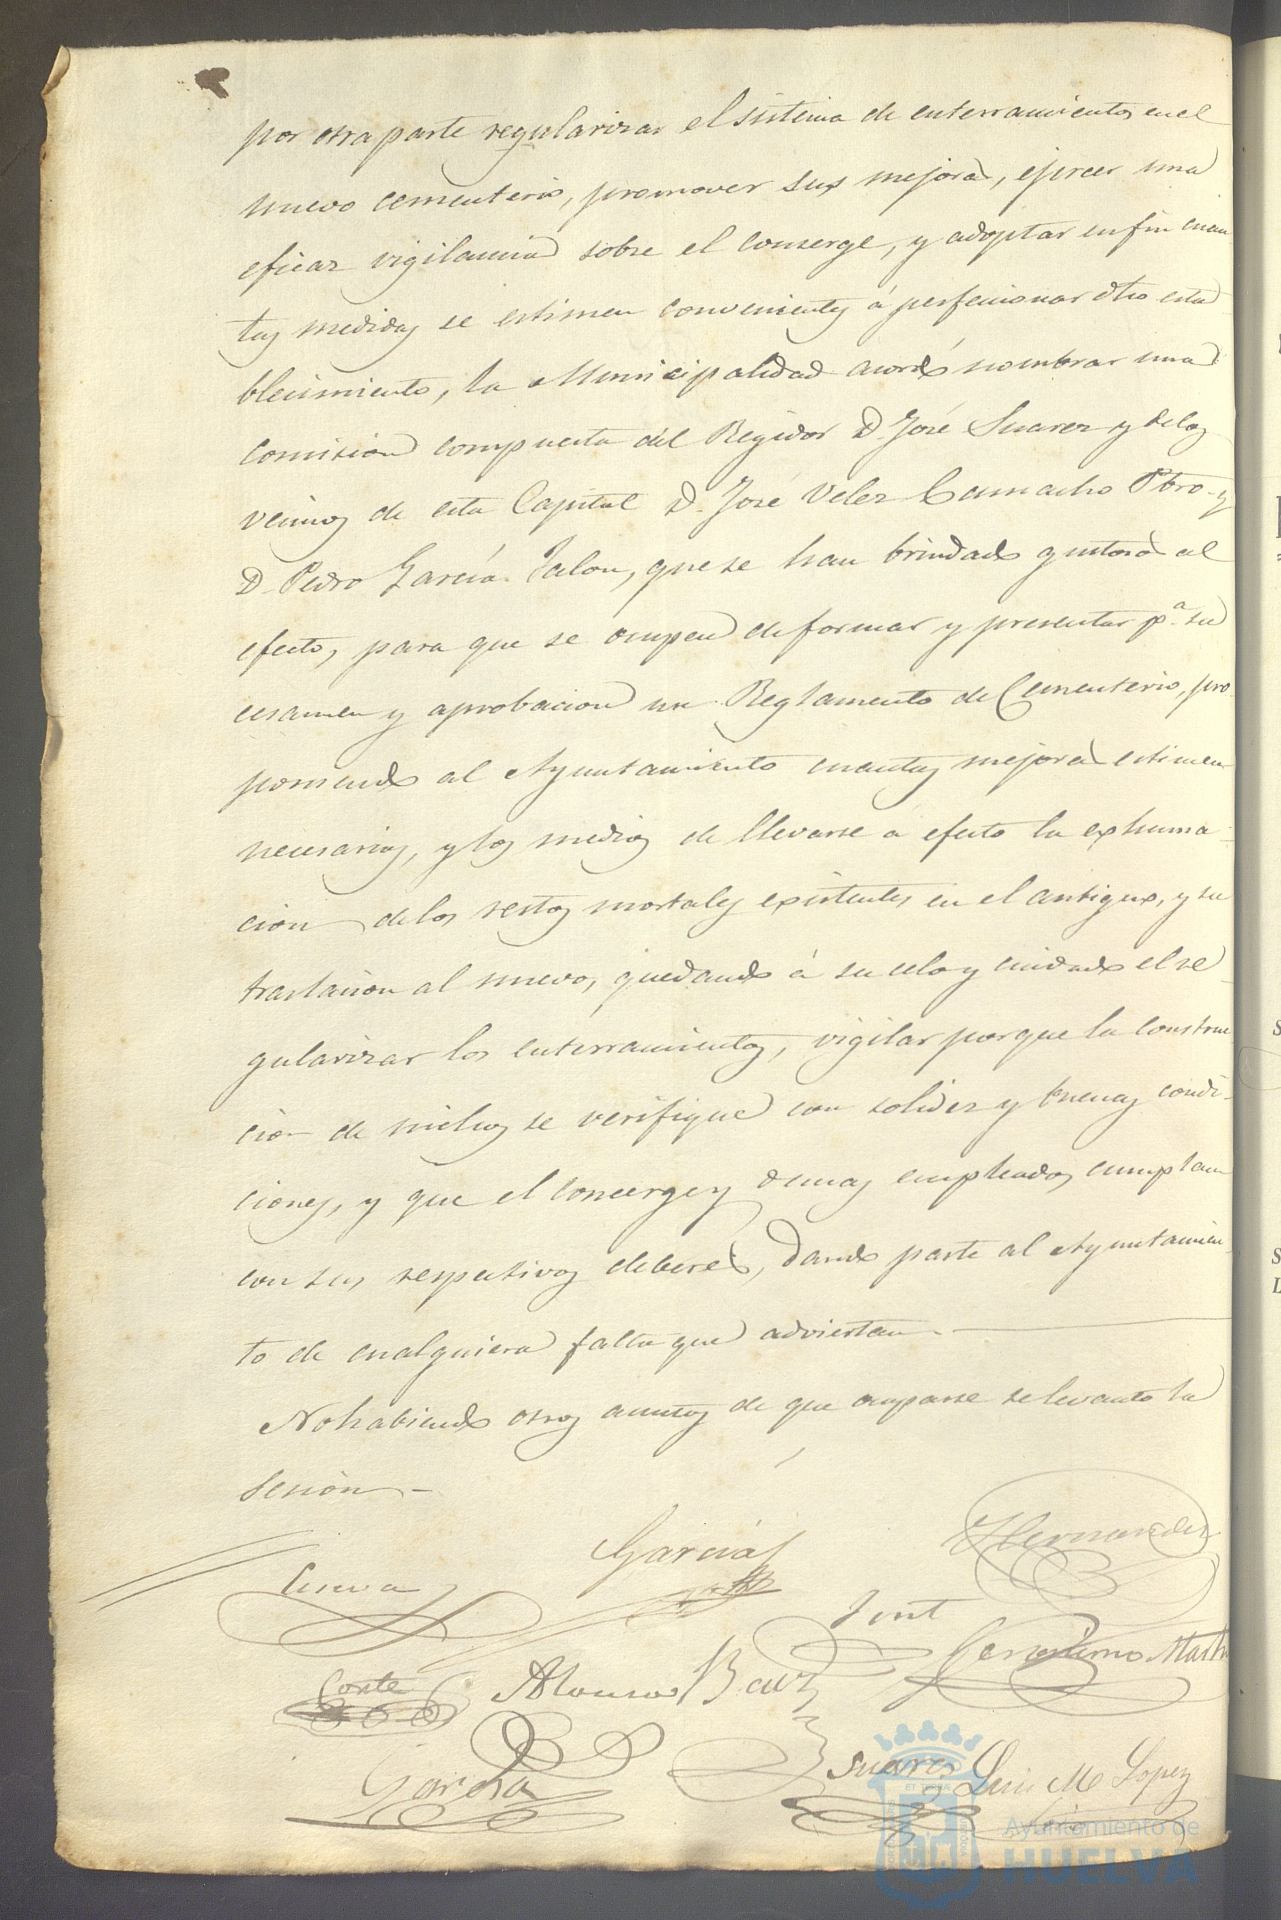 por otra parte regularizar el sistema de enterramientos en el
nuevo cementerio, promover sus mejoras, ejercer una
eficaz vigilancia sobre el conserge, y adoptar en fin cuan
tas medidas se estimen convenientes á perfeccionar dho esta
blecimiento, la Municipalidad acordó nombrar una
comision compuesta del Regidor D. José Suarez y de los
vecinos de esta Capital D. José Velez Camacho Pbro. y
D. Pedro García Jalon, que se han brindado gustosos al
efecto, para que se ocupen de formar y presentar pª. su
ecsamen y aprobacion un Reglamento de Cementerio, pro
poniendo al Ayuntamiento cuantas mejoras estimen
necesarias, y los medios de llevarse a efecto la exhuma
cion de los restos mortales existentes en el antiguo, y su
traslacion al nuevo, quedando á su celo y cuidado el re
gularizar los enterramientos, vigilar porque la construc
cion de nichos se verifique con solidez y buenas condi-
ciones, y que el conserge y demas empleados cumplan
con sus respectivos deberes, dando parte al Ayuntamien-
to de cualquiera falta que adviertan.
No habiendo otros asuntos de que ocuparse se levantó la
sesion -
Garcia Hernandez
Cueva
Font
Geronimo Martin
Conte Alonso Baez
Garcia Suarez Luis M Lopez
ET TERRÆ
Ayuntamiento de
HUELVA
S
S
L